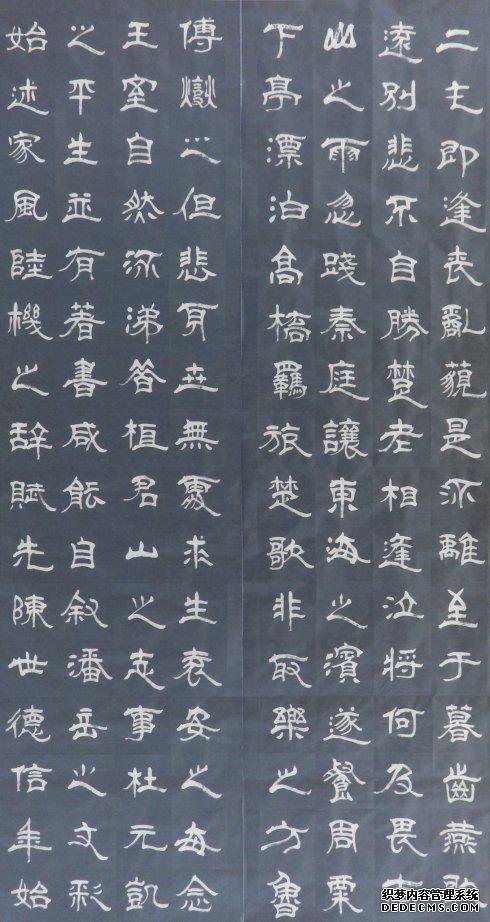 二毛即逢喪亂藐是流離至于暮齒燕歌
遠別悲不自勝楚老相逢泣將何及畏南
山之雨忽踐秦庭讓東海之濱遂餐周粟
下亭漂泊高橋羈旅楚歌非取樂之方魯
傅燮之但悲身世無處求生袁安之每念
王室自然流涕昔桓君山之志事杜元凱
之平生並有著書咸能自叙潘岳之文彩
始述家風陸機之辭賦先陳世德信年始
织梦内容管理系统
DEDECMS.COM